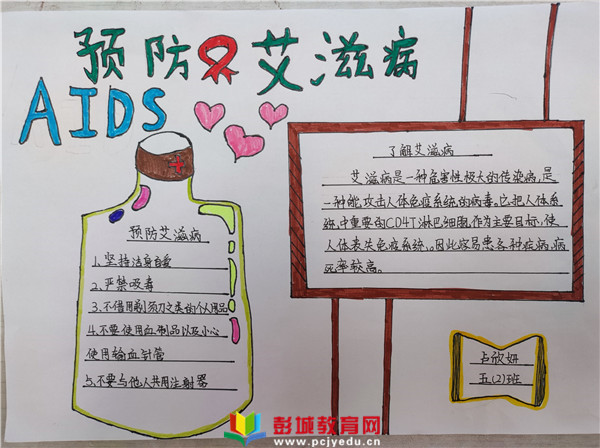 预防艾滋病
AIDS
预防艾滋病
1、坚持洁身自爱
2、严禁吸毒
3、不借用剃须刀之类的个人用品
4、不要使用血制品以及小心
使用输血针管
5、不要与他人共用注射器
了解艾滋病
艾滋病是一种危害性极大的传染病,是
一种能攻击人体免疫系统的病毒。它把人体系
统中重要的CD4T淋巴细胞作为主要目标,使
人体丧失免疫系统。因此容易患各种疾病,病
死率较高。
卢欣妍
五(2)班
彭城教育网
www.pcjyedu.cn